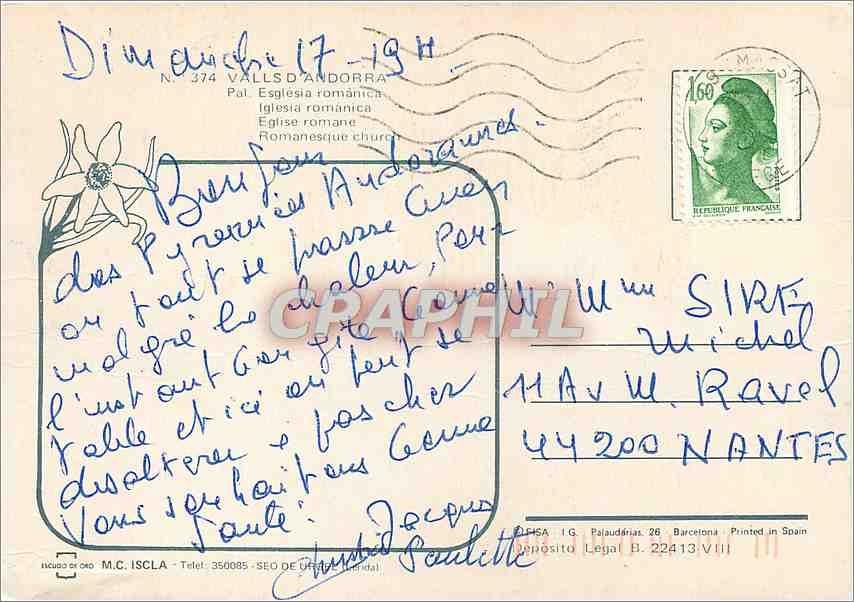 Dimanche 17 - 19 H.
N.° 374 VALLS D'ANDORRA
Pal. Església romànica
Iglesia románica
Eglise romane
Romanesque church
Bonjour
des Pyrénées Andoranes.
ou tout se passe bien
malgré la chaleur, Pour
l'instant bon gite bonne
table et ici on peut se
desalterer pas cher
Vous souhaitons bonne
santé.
Jacques
Paulette
1,60
REPUBLIQUE FRANÇAISE
CRAPHIL
Mr Mme SIRE
Michel
11 Av M. Ravel
44200 NANTES
FISA I.G. Palaudarias, 26 Barcelona Printed in Spain
Depósito Legal B. 22413-VIII
ESCUDO DE ORO M.C. ISCLA - Telef: 350085 - SEO DE URGEL (Lérida)